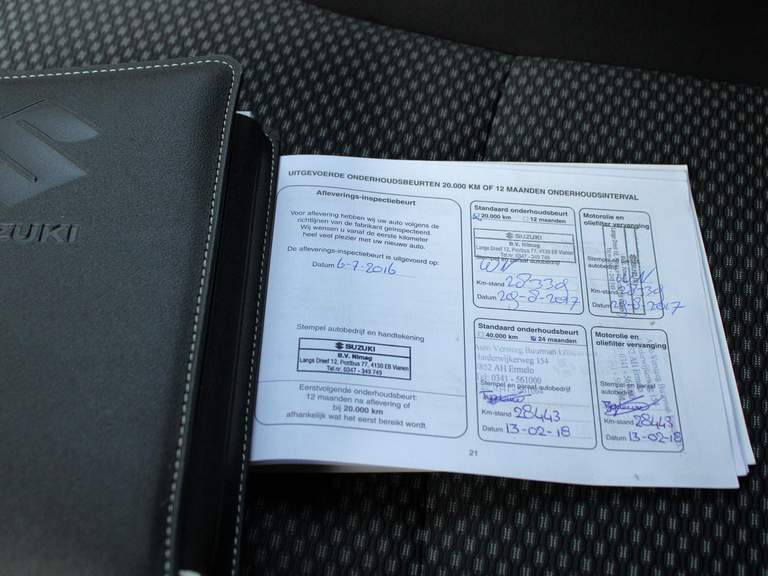 SUZUKI
UITGEVOERDE ONDERHOUDSBEURTEN 20.000 KM OF 12 MAANDEN ONDERHOUDSINTERVAL
Afleverings-inspectiebeurt
Voor aflevering hebben wij uw auto volgens de
richtlijnen van de fabrikant geïnspecteerd.
Wij wensen u vanaf de eerste kilometer
heel veel plezier met uw nieuwe auto.
De afleverings-inspectiebeurt is uitgevoerd op:
Datum 6-7-2016
Stempel autobedrijf en handtekening
SUZUKI
B.V. Nimag
Langs Dreef 12, Postbus 77, 4130 EB Vianen
Tel.nr. 0347 - 349 749
Eerstvolgende onderhoudsbeurt:
12 maanden na aflevering of
bij 20.000 km
afhankelijk wat het eerst bereikt wordt.
Standaard onderhoudsbeurt
20.000 km 12 maanden
SUZUKI
B.V. Nimag
Langs Dreef 12, Postbus 77, 4130 EB Vianen
Tel.nr. 0347 - 349 749
Stempel en paraaf autobedrijf
Km-stand 28339
Datum 28-8-2017
Motorolie en
oliefilter vervanging
Stempel en
autobedrijf
Km-stand 28339
Datum 28-8-2017
Standaard onderhoudsbeurt
40.000 km 24 maanden
Harderwijkerweg 154
3852 AH Ermelo
Tel: 0341 - 561000
Stempel en paraaf autobedrijf
Km-stand 28443
Datum 13-02-18
Motorolie en
oliefilter vervanging
Stempel en paraaf
autobedrijf
Km-stand 28443
Datum 13-02-18
21